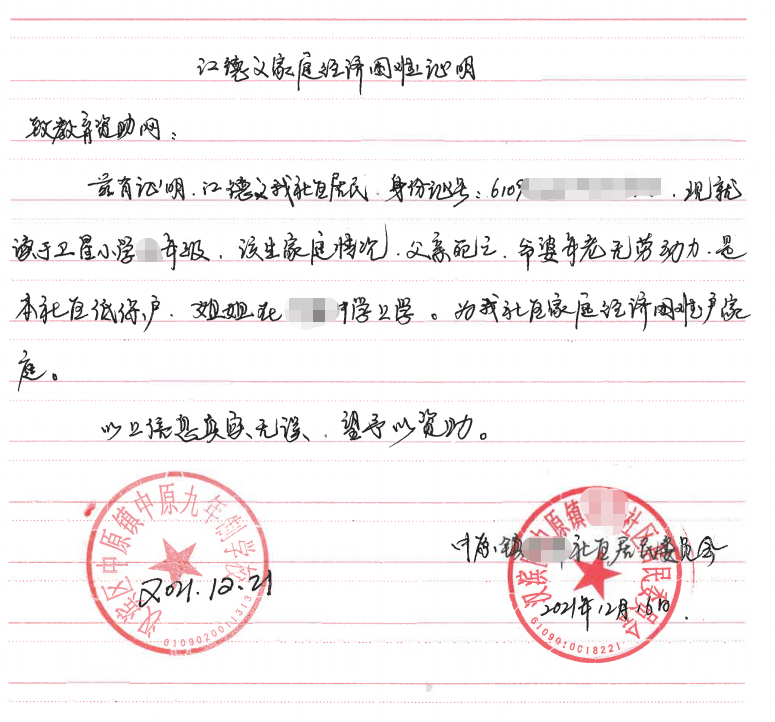 江德义家庭经济困难证明
致教育资助网：
兹有证明.江德义我社区居民.身份证号：6109.现就
读于卫星小学年级.该生家庭情况.父亲死亡.爷婆年老无劳动力.是
本社区低保户.姐姐在中学上学。为我社区家庭经济困难户家
庭。
以上信息真实无误、望予以资助。
汉滨区中原镇中原九年制学校
2021.12.21
6109020011313
中原镇社区居民委员会
2021年12月16日.
汉滨区中原镇社区居民委员会
6109010018221